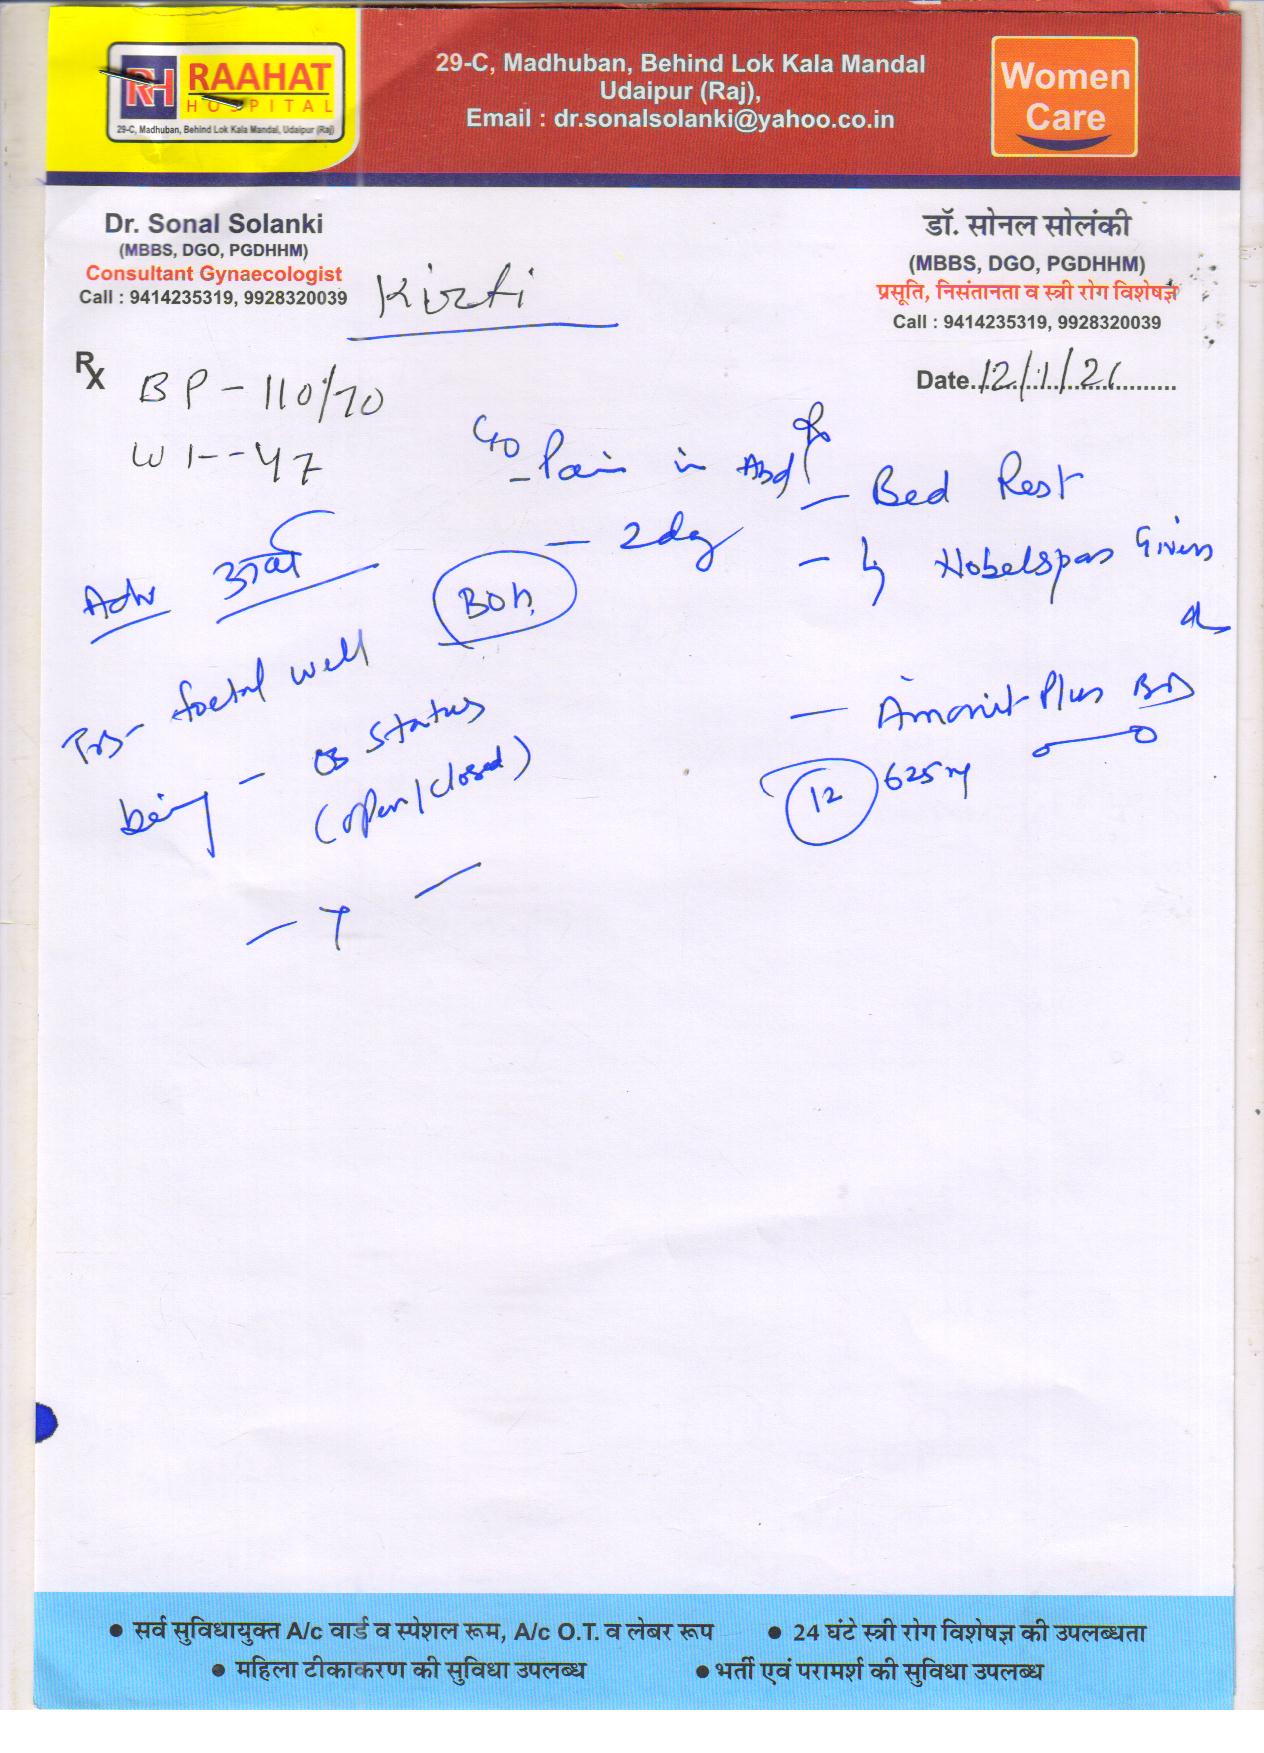 RH RAAHAT
HOSPITAL
29-C, Madhuban, Behind Lok Kala Mandal, Udaipur (Raj)
29-C, Madhuban, Behind Lok Kala Mandal
Udaipur (Raj),
Email : dr.sonalsolanki@yahoo.co.in
Women
Care
Dr. Sonal Solanki
(MBBS, DGO, PGDHHM)
Consultant Gynaecologist
Call : 9414235319, 9928320039
डॉ. सोनल सोलंकी
(MBBS, DGO, PGDHHM)
प्रसूति, निसंतानता व स्त्री रोग विशेषज्ञ
Call : 9414235319, 9928320039
Kirti
Rx
Date 12/1/26
BP - 110/70
Wt - 47
C/O
- Pain in Abd
- 2day
BOH
Adv
foetal well
being - OS Status
(open/closed)
Rx
- Bed Rest
- Given
- Plus BD
12 625
• सर्व सुविधायुक्त A/c वार्ड व स्पेशल रूम, A/c O.T. व लेबर रूप • 24 घंटे स्त्री रोग विशेषज्ञ की उपलब्धता
• महिला टीकाकरण की सुविधा उपलब्ध • भर्ती एवं परामर्श की सुविधा उपलब्ध